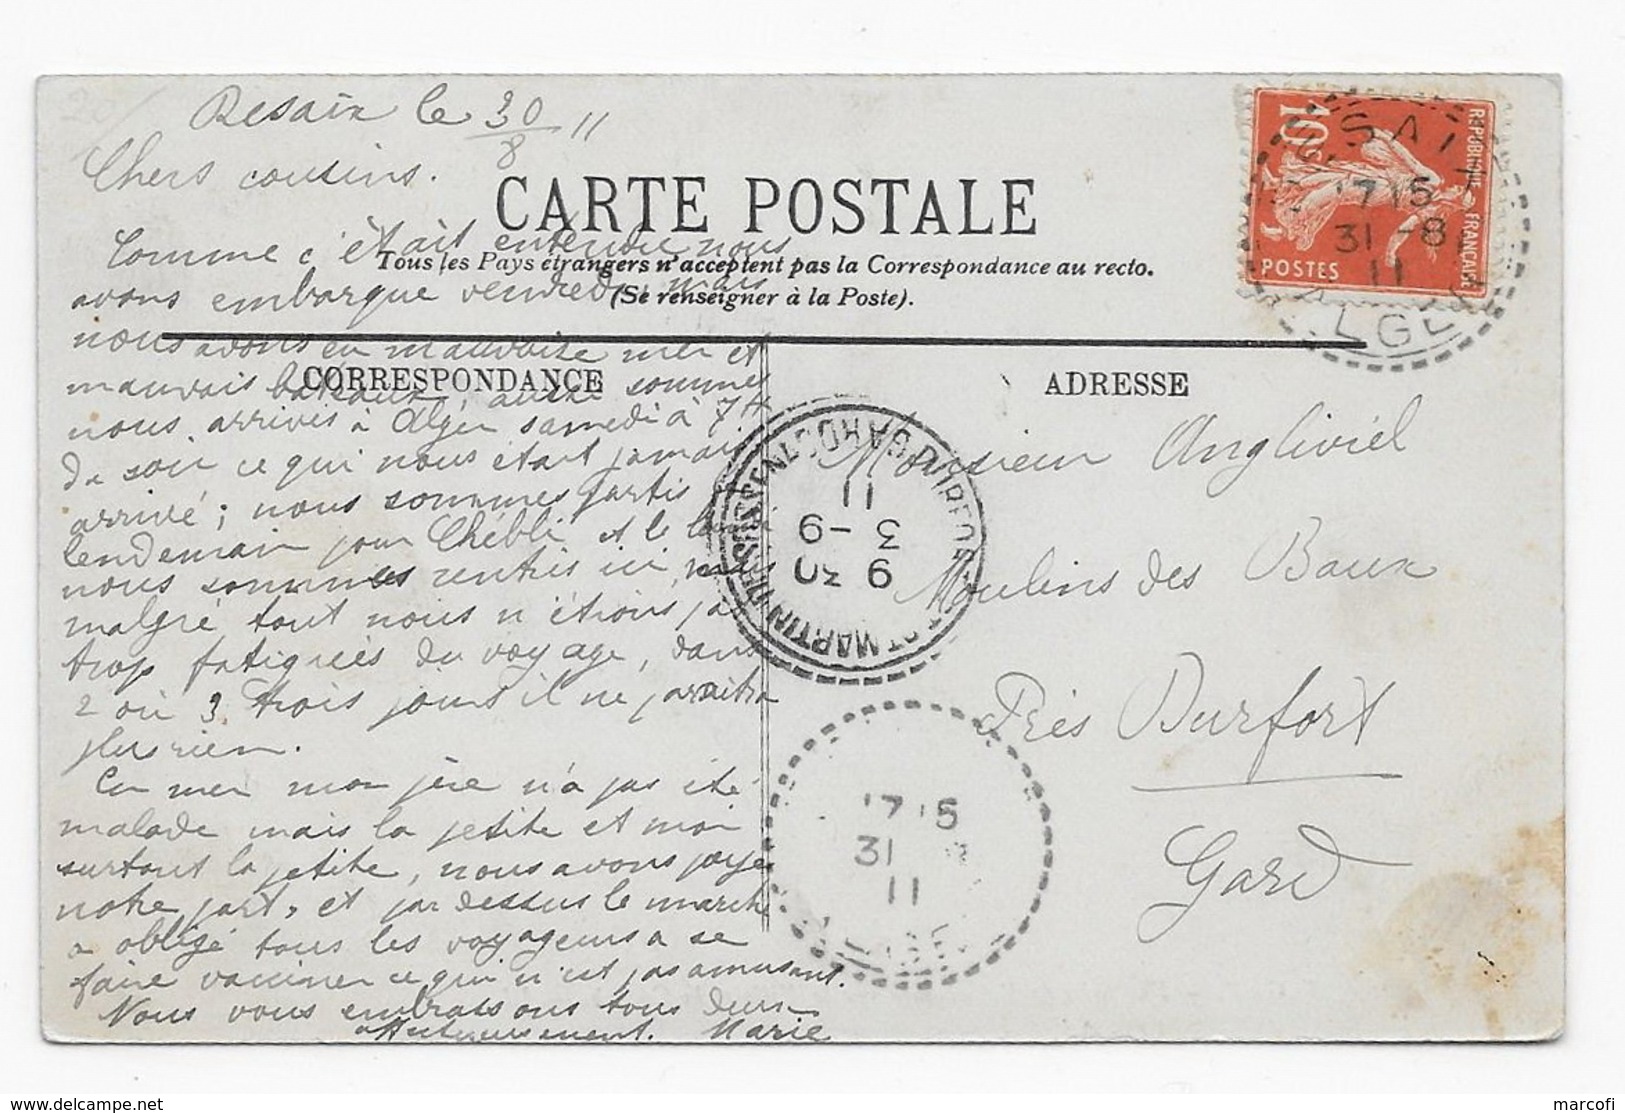 Desaix le 30/8 11
Chers cousins.
CARTE POSTALE
Comme c'était entendu nous
Tous les Pays étrangers n'acceptent pas la Correspondance au recto.
(Se renseigner à la Poste).
avons embarque vendredi, mais
nous avons eu mauvaise mer et
mauvais bateaux, aussi sommes
nous arrivés à Alger samedi à 7 H
du soir ce qui nous était jamais
arrivé; nous sommes partis
lendemain pour Chébli et le lundi
nous sommes rentrés ici, mais
malgré tout nous n'étions pas
trop fatiguées du voyage, dans
2 ou 3 trois jours il ne paraitra
plus rien.
En mer mon père n'a pas été
malade mais la petite et moi
surtout la petite, nous avons payé
notre part, et par dessus le marché
a obligé tous les voyageurs a se
faire vacciner ce qui n'est pas amusant.
Nous vous embrassons tous
affectueusement. Marie
CORRESPONDANCE
ADRESSE
Monsieur Angliviel
Moulins des Baux
Près Durfort
Gard
REPUBLIQUE FRANÇAISE
10c
POSTES
17 15
31 -8
11
ST MARTIN DE
GARD
9 30
3 -9
11
17 15
31 8
11
marcofi